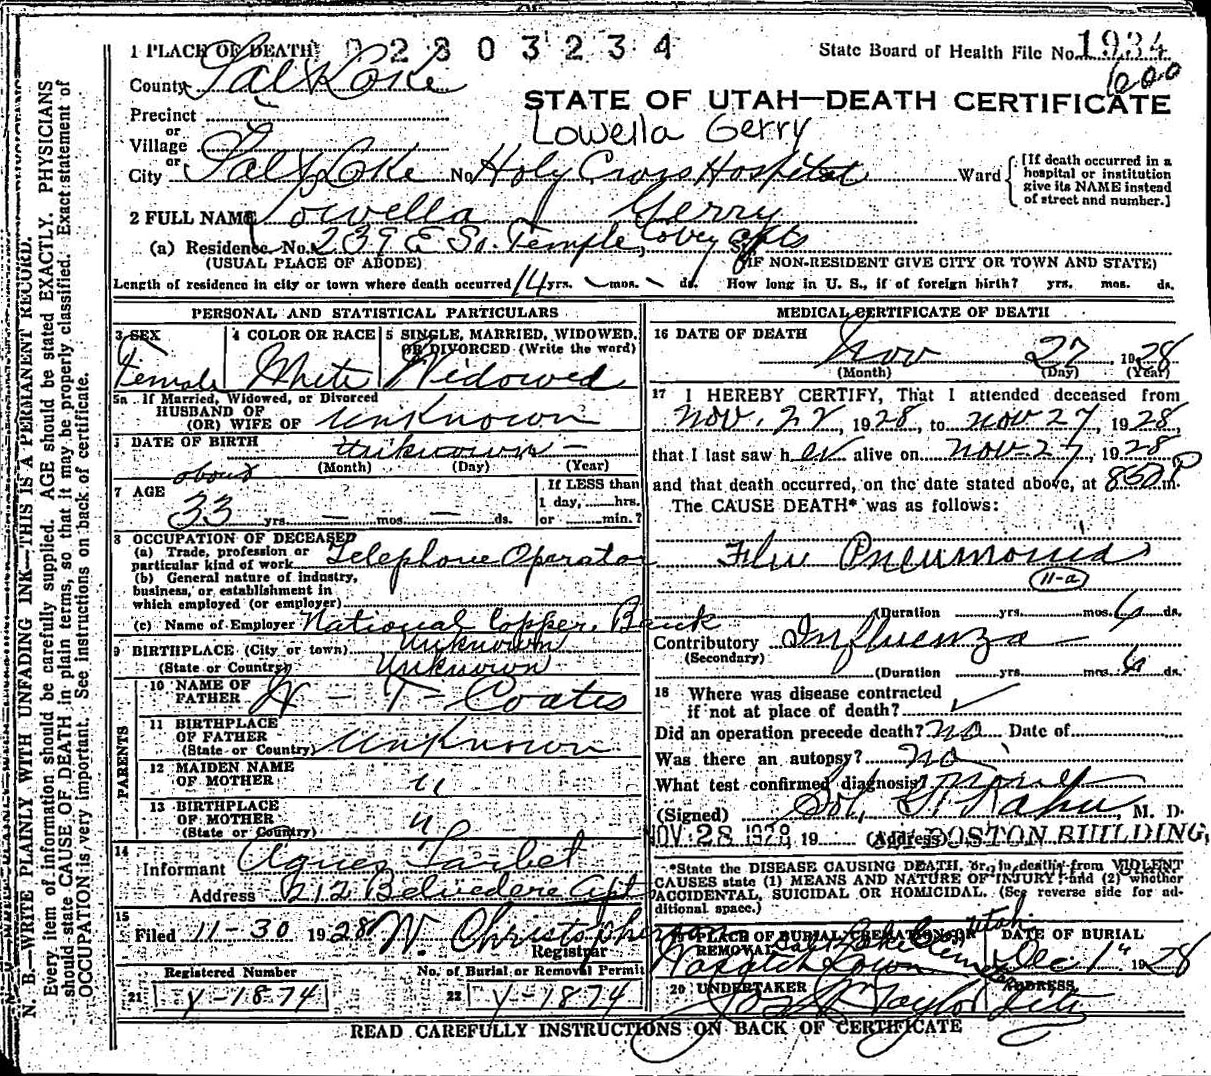 N. B.—WRITE PLAINLY WITH UNFADING INK—THIS IS A PERMANENT RECORD.
Every item of information should be carefully supplied. AGE should be stated EXACTLY. PHYSICIANS
should state CAUSE OF DEATH in plain terms, so that it may be properly classified. Exact statement of
OCCUPATION is very important. See instructions on back of certificate.
1 PLACE OF DEATH 02803234 State Board of Health File No. 1934
County Salt Lake 600
STATE OF UTAH—DEATH CERTIFICATE
Precinct
or Lowella Gerry
Village
or
City Salt Lake No Holy Cross Hospital Ward
[If death occurred in a
hospital or institution
give its NAME instead
of street and number.]
2 FULL NAME Lowella Gerry
(a) Residence No. 239 E So. Temple, Covey Apts
(USUAL PLACE OF ABODE) (IF NON-RESIDENT GIVE CITY OR TOWN AND STATE)
Length of residence in city or town where death occurred 14 yrs. — mos. — ds. How long in U. S., if of foreign birth? yrs. mos. ds.
PERSONAL AND STATISTICAL PARTICULARS
3 SEX 4 COLOR OR RACE 5 SINGLE, MARRIED, WIDOWED,
OR DIVORCED (Write the word)
Female White Widowed
5a If Married, Widowed, or Divorced
HUSBAND OF
(OR) WIFE OF Unknown
DATE OF BIRTH Unknown —
(Month) (Day) (Year)
about
7 AGE If LESS than
1 day, hrs.
33 yrs. — mos. — ds. or min.?
8 OCCUPATION OF DECEASED
(a) Trade, profession or
particular kind of work Telephone Operator
(b) General nature of industry,
business, or establishment in
which employed (or employer)
(c) Name of Employer National Copper Bank
9 BIRTHPLACE (City or town) Unknown
(State or Country) Unknown
PARENTS
10 NAME OF
FATHER T Coates
11 BIRTHPLACE
OF FATHER
(State or Country) Unknown
12 MAIDEN NAME
OF MOTHER u
13 BIRTHPLACE
OF MOTHER
(State or Country) u
14
Informant Agnes Tarbet
Address 212 Belvedere Apt
15
Filed 11-30 1928 W. Christopherson
Registrar
Registered Number No. of Burial or Removal Permit
21 Y-1874 22 Y-1874
MEDICAL CERTIFICATE OF DEATH
16 DATE OF DEATH
Nov 27 1928
(Month) (Day) (Year)
17 I HEREBY CERTIFY, That I attended deceased from
Nov. 22, 1928, to Nov 27, 1928,
that I last saw her alive on Nov 27, 1928
and that death occurred, on the date stated above, at 850 P m.
The CAUSE DEATH* was as follows:
Flu Pneumonia
11-a
(Duration yrs. mos. 6 ds.
Contributory Influenza
(Secondary)
(Duration yrs. mos. 6 ds.
18 Where was disease contracted
if not at place of death?
Did an operation precede death? no Date of
Was there an autopsy? no
What test confirmed diagnosis?
(Signed) Sol. G. Kahn, M. D.
NOV 28 1928, 19 (Address) BOSTON BUILDING,
*State the DISEASE CAUSING DEATH, or, in deaths from VIOLENT
CAUSES state (1) MEANS AND NATURE OF INJURY; and (2) whether
ACCIDENTAL, SUICIDAL OR HOMICIDAL. (See reverse side for ad-
ditional space.)
19 PLACE OF BURIAL, CREMATION OR DATE OF BURIAL
REMOVAL Salt Lake City, Utah
Wasatch Lawn Cemetery Dec 1" 1928
20 UNDERTAKER ADDRESS
Jos. Wm Taylor City
READ CAREFULLY INSTRUCTIONS ON BACK OF CERTIFICATE